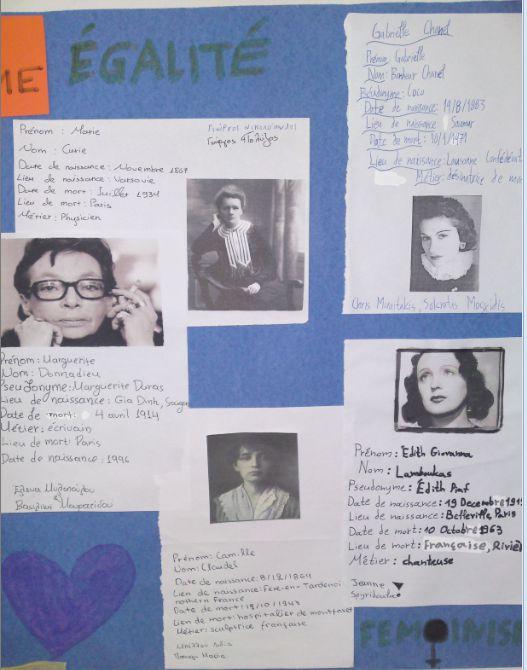 ME
ÉGALITÉ
Prénom : Marie
Nom : Curie
Date de naissance : Novembre 1867
Lieu de naissance : Varsovie
Date de mort : Juillet 1934
Lieu de mort : Paris
Métier : Physicien
Gabrielle Chanel
Prénom: Gabrielle
Nom: Bonheur Chanel
Pseudonyme: Coco
Date de naissance: 19/8/1883
Lieu de naissance : Saumur
Date de mort: 10/1/1971
Lieu de naissance: Lausanne
Métier:
Prénom: Marguerite
Nom: Donnadieu
Pseudonyme: Marguerite Duras
Lieu de naissance: Gia Dinh,
Date de mort: 4 avril 1914
Métier: écrivain
Lieu de mort: Paris
Date de naissance: 1996
Prénom: Camille
Nom: Claudel
Date de naissance: 8/12/1864
Lien de naissance: Fère-en-Tardenoi
northern France
Date de mort: 19/10/1943
Lien de mort: hospitalier de
Métier: sculptrice française
Prénom: Edith Giovanna
Nom: Lamboukas
Pseudonyme: Édith Piaf
Date de naissance: 19 Decembre 191
Lieu de naissance: Belleville Paris
Date de mort: 10 Octobre 1963
Lieu de mort: Françoise, Riviè
Métier: chanteuse
Jeanne
FEMOINIS